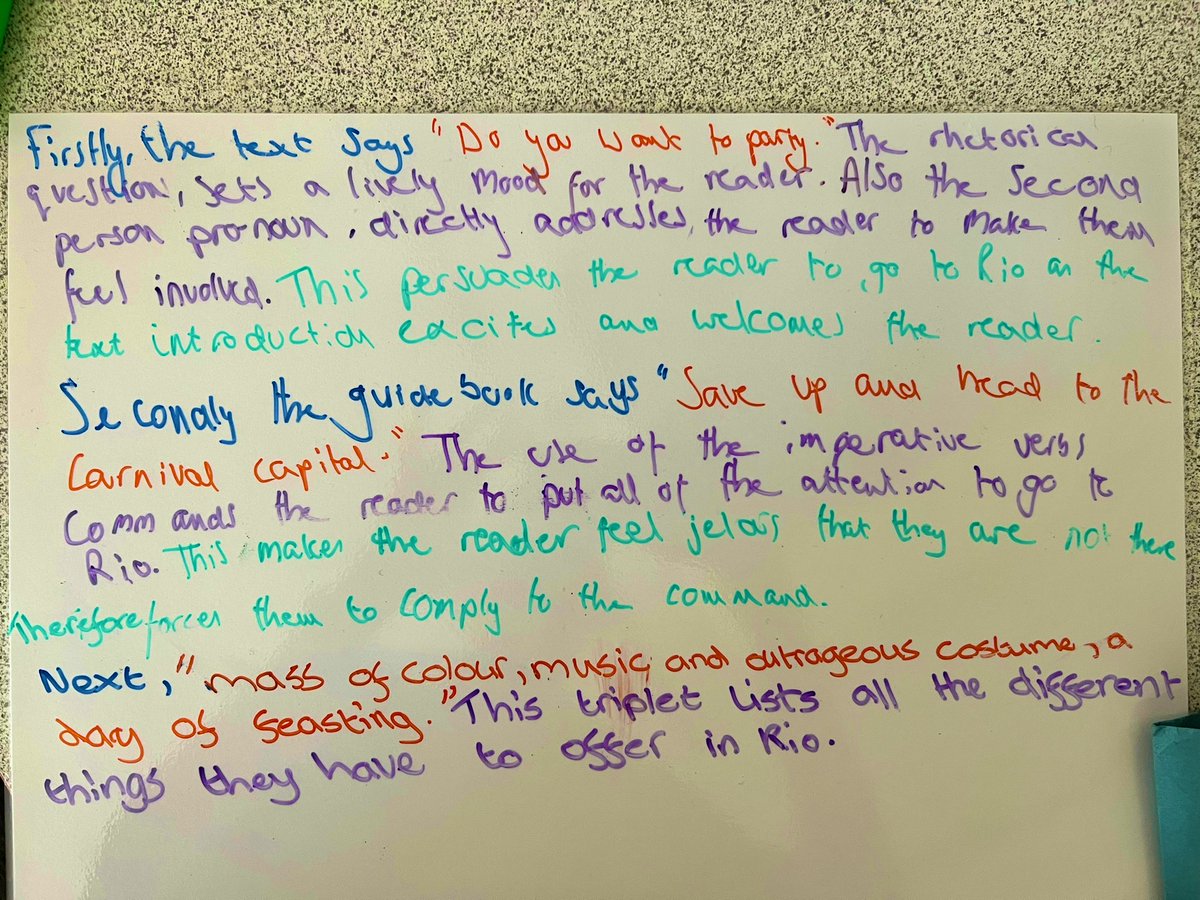 Firstly, the text says "Do you want to party." The rhetorical
question, sets a lively mood for the reader. Also the second
person pronoun, directly addresses, the reader to make them
feel involved. This persuades the reader to, go to Rio as the
text introduction excites and welcomes the reader.
Secondly the guide book says "Save up and head to the
Carnival capital." The use of the imperative verbs
Commands the reader to put all of the attention to go to
Rio. This makes the reader feel jelous that they are not there
therefore forces them to comply to the command.
Next, "mass of colour, music, and outrageous costume, a
day of feasting." This triplet lists all the different
things they have to offer in Rio.